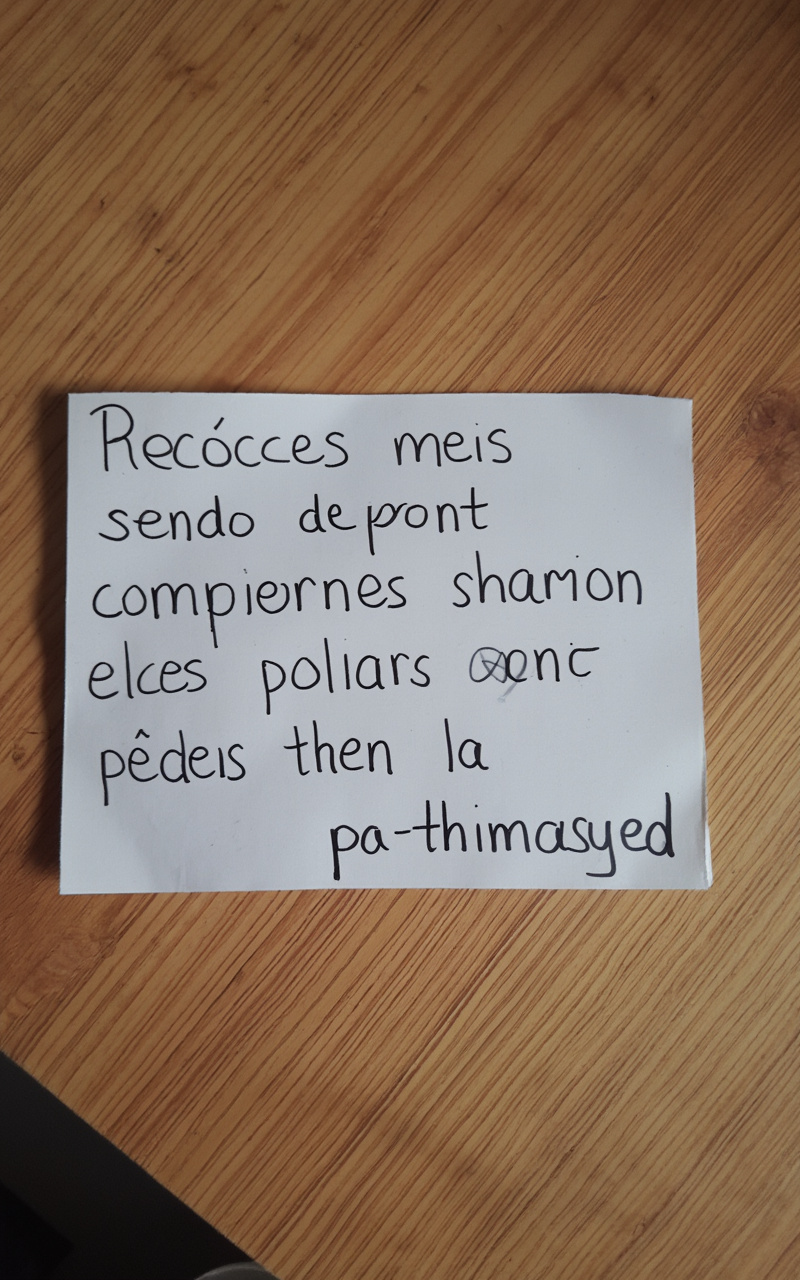 Recócces meis
sendo depont
compiernes shamon
elces poliars
pêdeis then la
pa-thimasyed